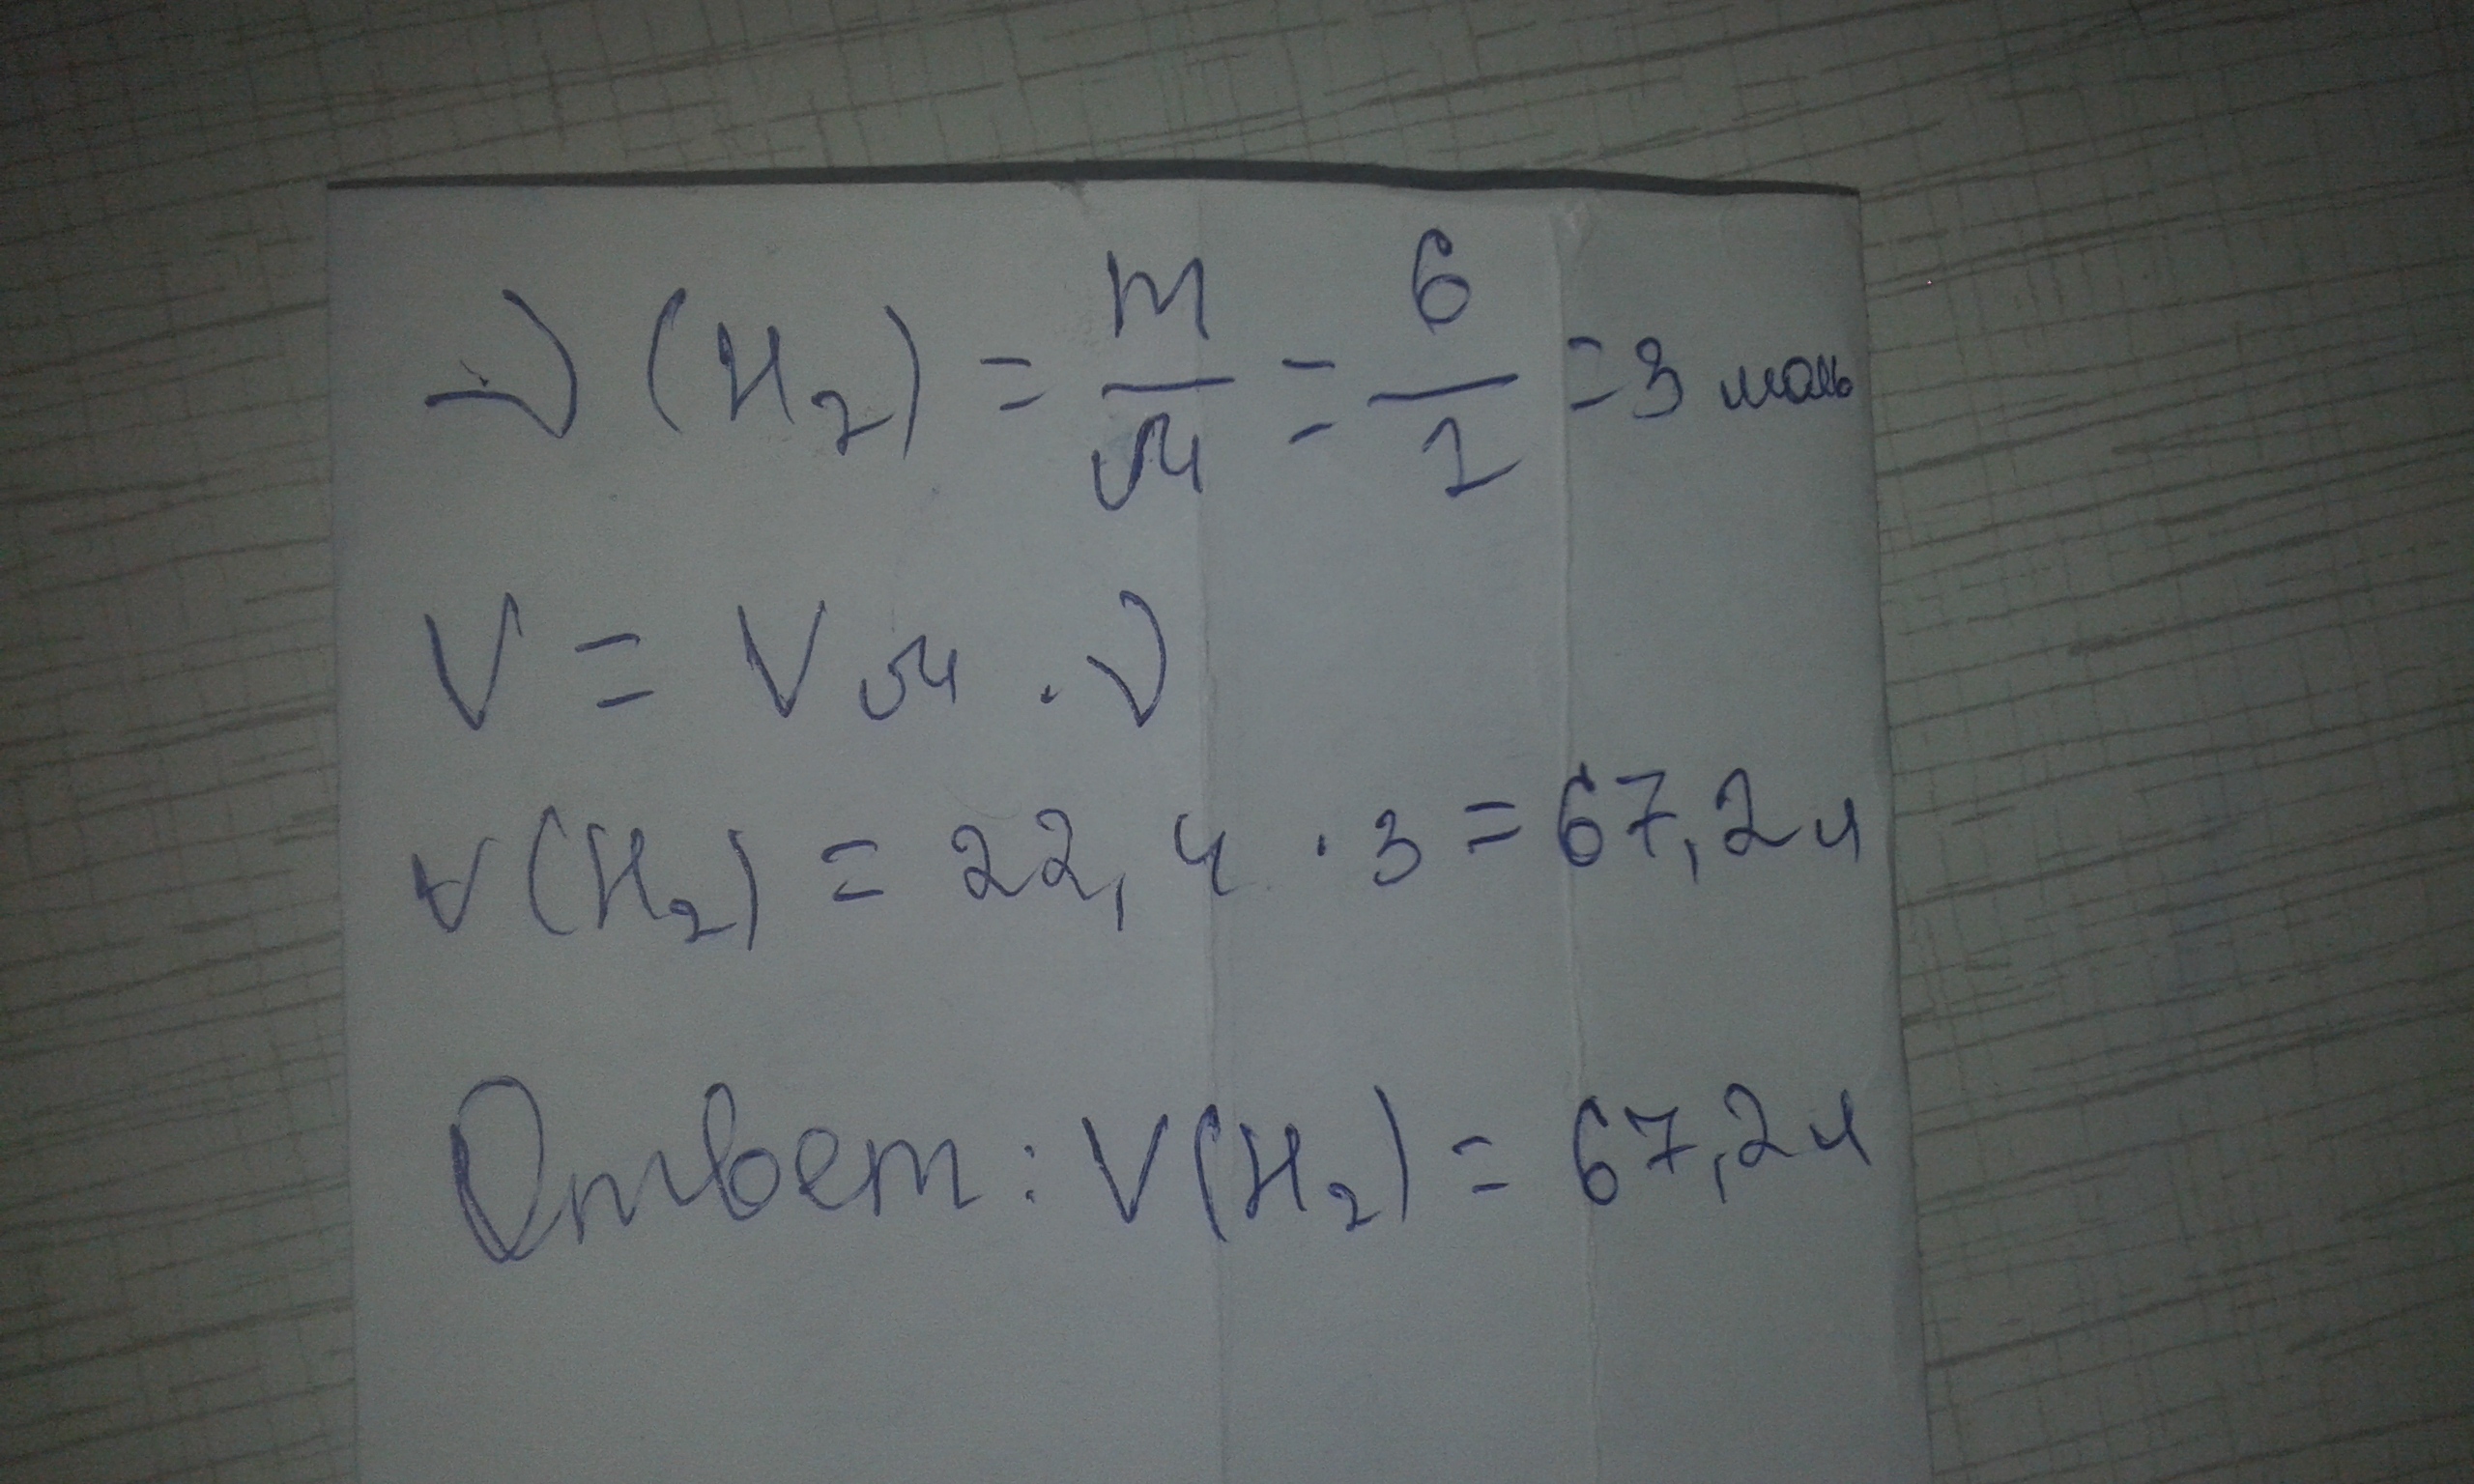 ν (H₂) = m/M = 6/2 = 3 моль
V = Vм · ν
v(H₂) = 22,4 · 3 = 67,2 л
Ответ: V(H₂) = 67,2 л